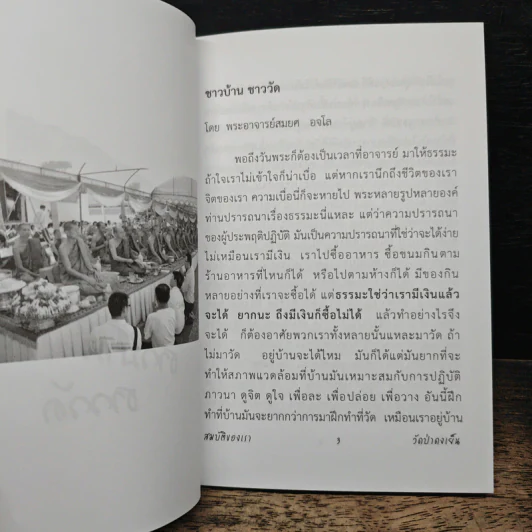 ชาวบ้าน ชาววัด
โดย พระอาจารย์สมยศ อจโล
พอถึงวันพระก็ต้องเป็นเวลาที่อาจารย์ มาให้ธรรมะ
ถ้าใจเราไม่เข้าใจก็น่าเบื่อ แต่หากเรานึกถึงชีวิตของเรา
จิตของเรา ความเบื่อนี้ก็จะหายไป พระหลายรูปหลายองค์
ท่านปรารถนาเรื่องธรรมะนี่แหละ แต่ว่าความปรารถนา
ของผู้ประพฤติปฏิบัติ มันเป็นความปรารถนาที่ใช่ว่าจะได้ง่าย
ไม่เหมือนเรามีเงิน เราไปซื้ออาหาร ซื้อขนมกินตาม
ร้านอาหารที่ไหนก็ได้ หรือไปตามห้างก็ได้ มีของกิน
หลายอย่างที่เราจะซื้อได้ แต่ธรรมะใช่ว่าเรามีเงินแล้ว
จะได้ ยากนะ ถึงมีเงินก็ซื้อไม่ได้ แล้วทำอย่างไรจึง
จะได้ ก็ต้องอาศัยพวกเราทั้งหลายนั้นแหละมาวัด ถ้า
ไม่มาวัด อยู่บ้านจะได้ไหม มันก็ได้แต่มันยากที่จะ
ทำให้สภาพแวดล้อมที่บ้านมันเหมาะสมกับการปฏิบัติ
ภาวนา ดูจิต ดูใจ เพื่อละ เพื่อปล่อย เพื่อวาง อันนี้ฝึก
ทำที่บ้านมันจะยากกว่าการมาฝึกทำที่วัด เหมือนเราอยู่บ้าน
สมบัติของเรา 3 วัดป่าดงเย็น
ชาววัด